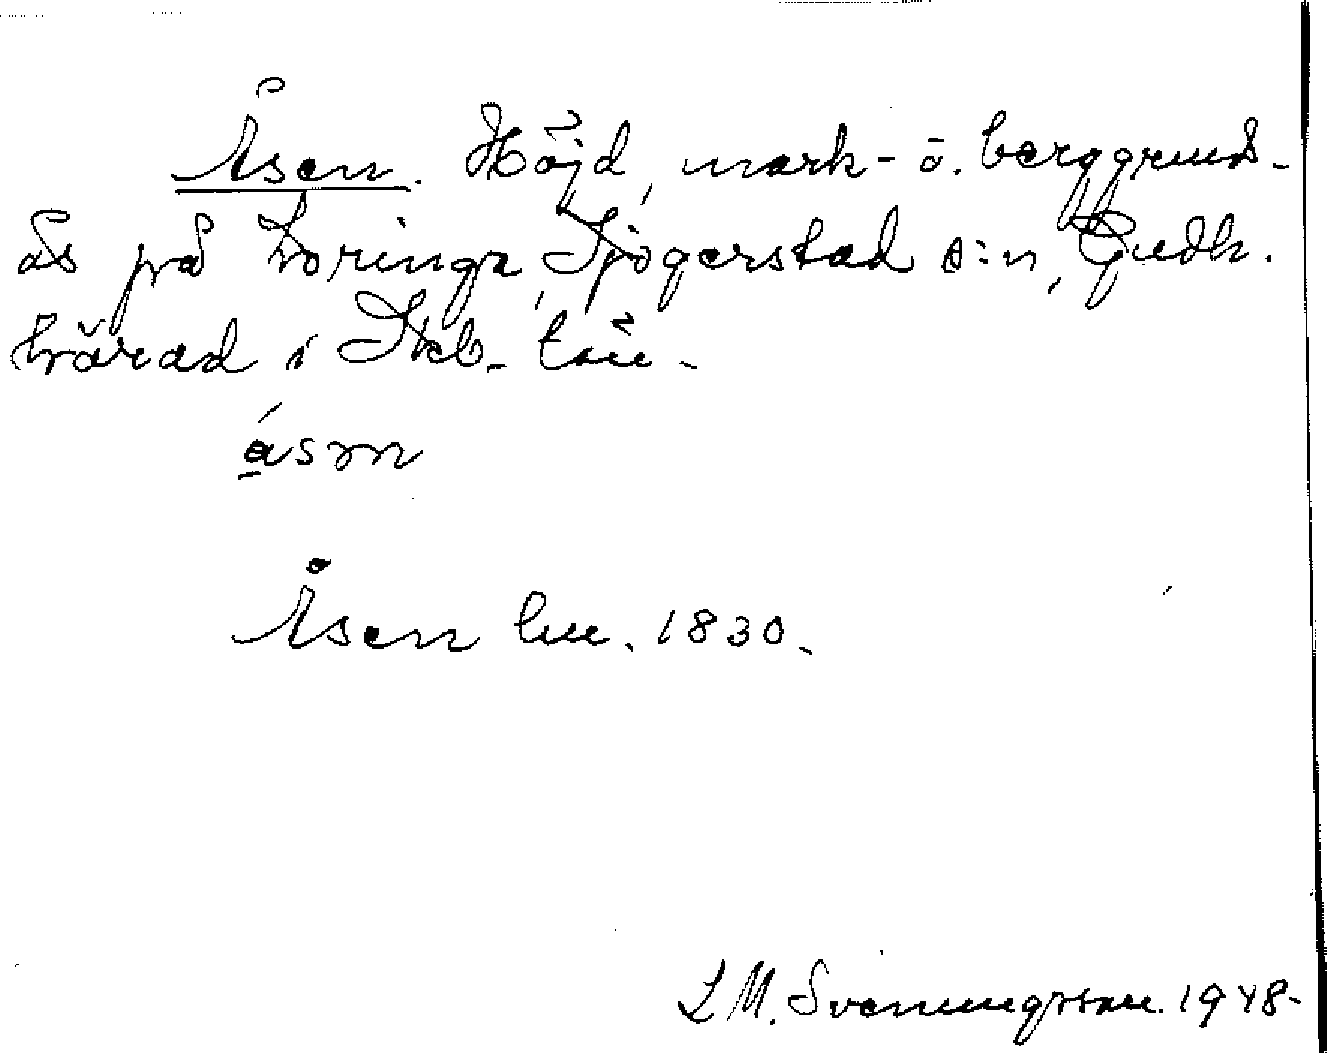 Åsen. Höjd, mark- o. berggrunds-
ås på Loringa, Sjögerstad s:n, Gudh.
härad i Skb. län.
åsm
Åsen lm. 1830.
L M. Svenningsson. 1948.